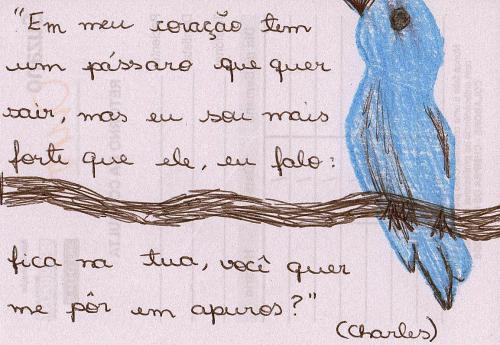 "Em meu coração tem
um pássaro que quer
sair, mas eu sou mais
forte que ele, eu falo:
fica na tua, você quer
me pôr em apuros?"
(Charles)